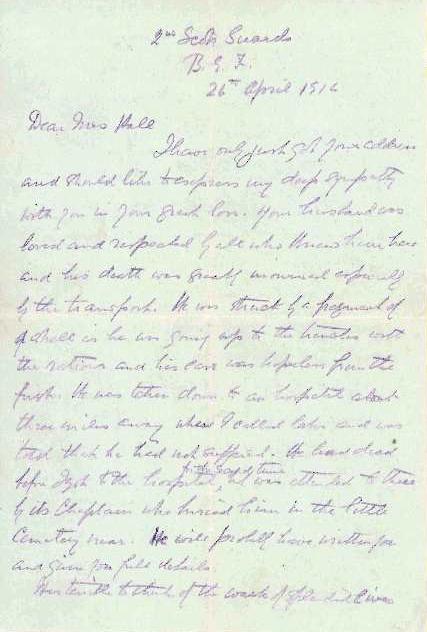 2nd Scots Guards
B.E.F.
26th April 1916
Dear Mrs Hall
I have only just got your address
and should like to express my deep sympathy
with you in your great loss. Your husband was
loved and respected by all who knew him here
and his death was greatly mourned especially
by the transport. He was struck by a fragment of
a shell as he was going up to the trenches with
the rations and his case was hopeless from the
first. He was taken down to an hospital about
three miles away where I called later and was
told that he had not suffered. He had died
before I got to the hospital
he was attended to there
by its Chaplain who buried him in the little
Cemetery near. He will probably have written you
and given you full details.
terrible to think of the waste of splendid lives